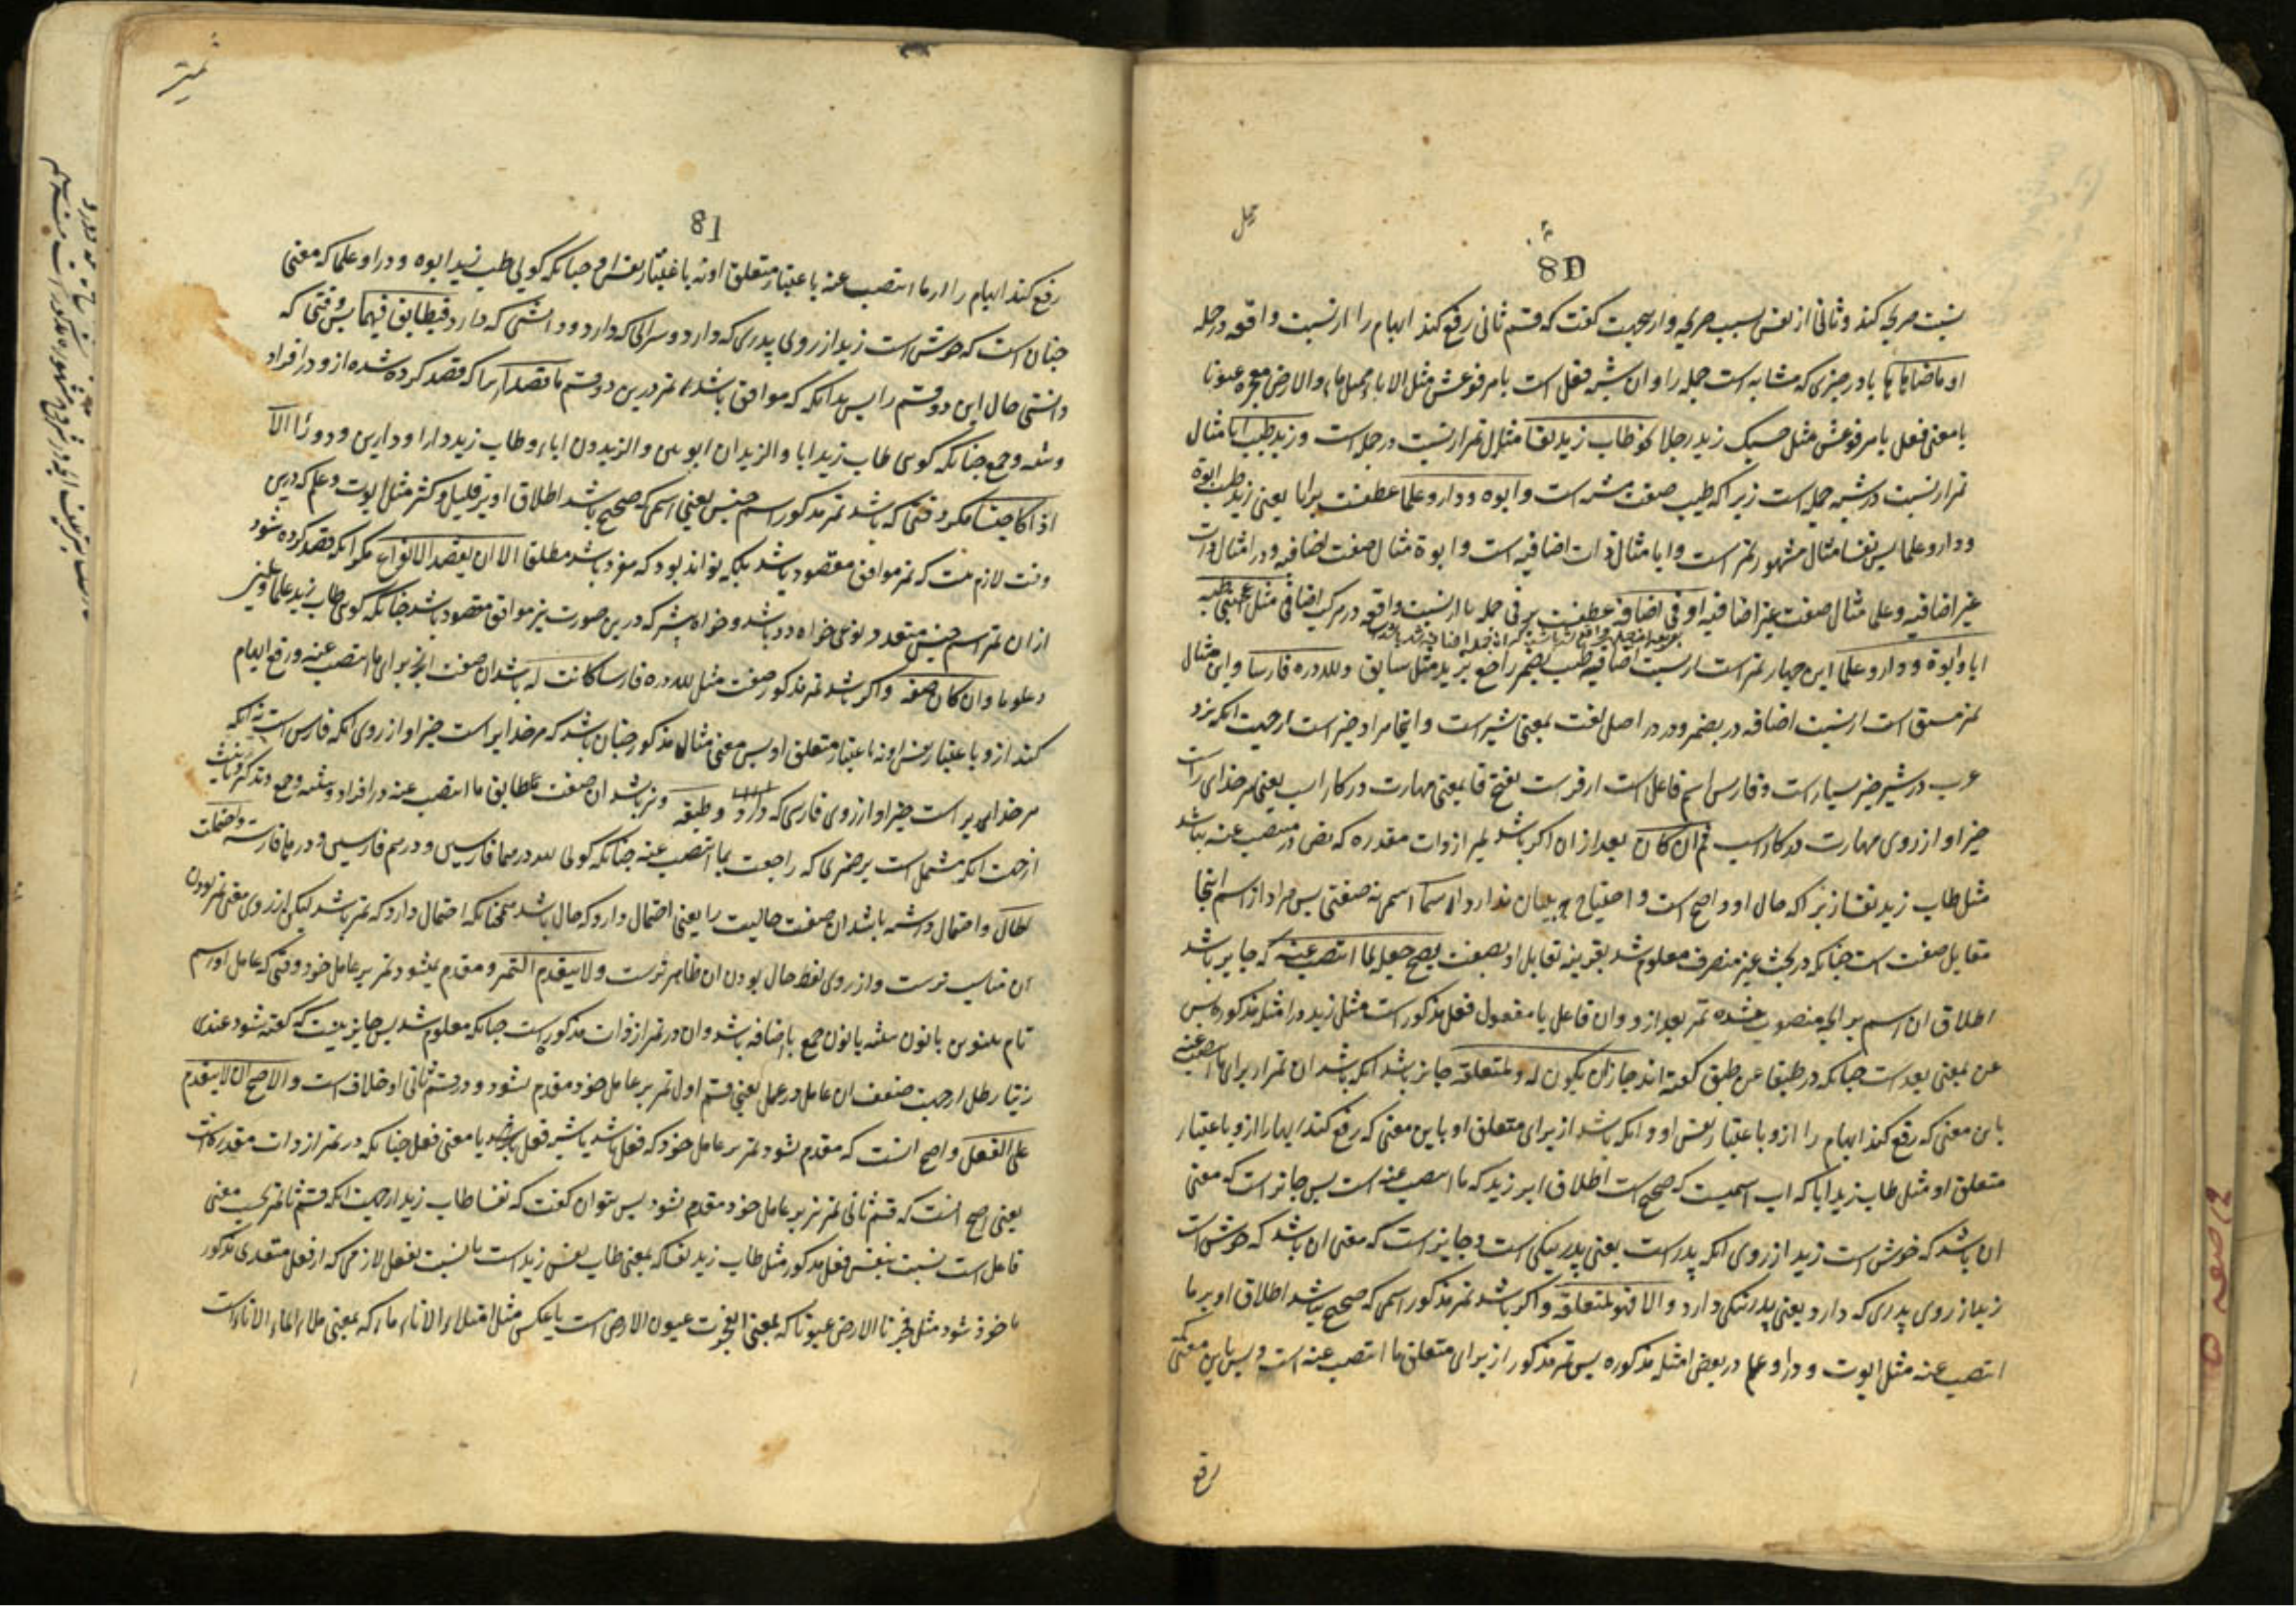 8D
نسبت صریحی کند و ثانی از نفس نسبت صریحی و از ینجهت گفت که قسم ثانی رفع کند ابهام را از نسبت واقعه در جمله
او ما ضاهاها یا در چیزی که مشابه است جمله را و ان شبه فعل است با مرفوعش مثل الاناء ممتلی ماء والارض مفجره عیونا
یا معنی فعل با مرفوعش مثل حسبک زید رجلا نحو طاب زید نفسا مثال تمیز از نسبت در جمله است و زید طیب ابا مثال
تمیز از نسبت در شبه جمله است زیرا که طیب صفت مشبه است وابوه ودارا وعلما عطفست بر ابا یعنی زید طیب ابوة
ودارا وعلما پس نفسا مثال مشهور تمیز است وابا مثال ذات اضافیه است وابوة مثال صفت اضافیه ودار مثال ذات
غیر اضافیه وعلم مثال صفت غیر اضافیه او فی اضافة عطفست بر فی جمله یا از نسبت واقعه در مرکب اضافی مثل یعجبنی طیبه
ابا وابوة ودارا وعلما این چهار تمیز است از نسبت اضافیه طیب بضمیر راجع بزید مثل سابق ولله دره فارسا واین مثال
تمیز مشتق است از نسبت اضافه در بضمیر ودر در اصل لغت بمعنی شیر است و اینجا مراد خیر است از جهت انکه نزد
عرب در شیر خیر بسیار است وفارس اسم فاعل است از فرست بفتح فا بمعنی مهارت در کار اسب یعنی مر خدای راست
خیر او از روی مهارت در کار اسب ثم ان کان بعد از ان اگر باشد تمیز از ذات مقدره که نص در منتصب عنه نباشد
مثل طاب زید نفسا زیرا که حال او واضح است و احتیاج به بیان ندارد اسما اسمی نه صفتی پس مراد از اسم اینجا
مقابل صفت است چنانکه در بحث غیر منصرف معلوم شد بقرینه تقابل او بصفت یصح جعله لما انتصب عنه که جایز باشد
اطلاق ان اسم بر انچه منصوب شده تمیز بعد از و وان فاعل یا مفعول فعل مذکور است مثل زید در امثله مذکوره پس
عن بمعنی بعد است چنانکه در طبقا عن طبق گفته اند جاز ان یکون له ولمتعلقه جایز باشد انکه باشد ان تمیز از برای ما انتصب عنه
باین معنی که رفع کند ابهام را از و باعتبار نفس او و انکه باشد از برای متعلق او باین معنی که رفع کند ابهام را از و باعتبار
متعلق او مثل طاب زید ابا که اب اسمیست که صحیح است اطلاق او بر زید که ما انتصب عنه است پس جایز است که معنی
ان باشد که خوش است زید از روی انکه پدر است یعنی پدر نیکی است و جایز است که معنی ان باشد که خوش است
زید از روی پدری که دارد یعنی پدر نیکی دارد والا فهو لمتعلقه و اگر باشد تمیز مذکور اسمی که صحیح نباشد اطلاق او بر ما
انتصب عنه مثل ابوت و دار و علم در بعض امثله مذکوره پس تمیز مذکور از برای متعلق ما انتصب عنه است و پس باین معنی
رفع
81
رفع کند ابهام را از ما انتصب عنه باعتبار متعلق او نه باعتبار نفس او چنانکه گویی طیب زید ابوه ودارا وعلما که معنی
چنان است که خوش است زید از روی پدری که دارد و سرائی که دارد و دانشی که دارد فیطابق فیهما پس وقتی که
دانستی حال این دو قسم را پس بدانکه که موافق باشد تمیز درین دو قسم ما قصد انرا که قصد کرده شده از و در افراد
وتثنیه وجمع چنانکه گویی طاب زید ابا والزیدان ابوین والزیدون اباء وطاب زید دارا ودارین ودورا الا
اذا کان جنسا مگر وقتی که باشد تمیز مذکور اسم جنس یعنی اسمی که صحیح باشد اطلاق او بر قلیل وکثیر مثل ابوت وعلم که درین
وقت لازم نیست که تمیز موافق مقصود باشد بلکه تواند بود که مفرد باشد مطلقا الا ان یقصد الانواع مگر انکه قصد کرده شود
از ان تمیز اسم جنس متعدد نوعی خواه دو باشد و خواه بیشتر که درین صورت نیز موافق مقصود باشد چنانکه گویی طاب زید علما وعلمین
وعلوما وان کان صفة واگر باشد تمیز مذکور صفت مثل لله دره فارسا کانت له باشد ان صفت از برای ما انتصب عنه ورفع ابهام
کند از و باعتبار نفس او نه باعتبار متعلق او پس معنی مثال مذکور چنان باشد که مر خدایراست خیر او از روی انکه فارس است نه انکه
مر خدای یراست خیر او از روی فارسی که دارد وطبقه ونیز باشد ان صفت مطابق ما انتصب عنه در افراد وتثنیه وجمع وتذکیر وتانیث
از جهت انکه مشتمل است بر ضمیری که راجعست بما انتصب عنه چنانکه گویی لله درهما فارسین ودرهم فارسین ودرها فارسة واحتملت
الحال واحتمال داشته باشد ان صفت حالیت را یعنی احتمال دارد که حال باشد همچنانکه احتمال دارد که تمیز باشد لیکن از روی معنی تمیز بودن
ان مناسب ترست واز روی لفظ حال بودن ان ظاهر ترست ولا یتقدم التمیز ومقدم نمیشود تمیز بر عامل خود وقتی که عامل او اسم
تام بتنوین یا نون تثنیه یا نون جمع یا اضافه باشد وان در تمیز از ذات مذکور است چنانکه معلوم شد پس جایز نیست که گفته شود عندی
زیتا رطل از جهت ضعف ان عامل در عمل یعنی قسم اول تمیز بر عامل خود مقدم نشود ودر قسم ثانی او خلاف است والاصح ان لا یتقدم
علی الفعل واصح انست که مقدم نشود تمیز بر عامل خود که فعل باشد یا شبه فعل باشد یا معنی فعل چنانکه در تمیز از ذات مقدره است
یعنی اصح انست که قسم ثانی تمیز نیز بر عامل خود مقدم نشود پس نتوان گفت که نفسا طاب زید از جهت انکه قسم ثانی تمیز بحسب معنی
فاعل است نسبت بنفس فعل مذکور مثل طاب زید نفسا که بمعنی طاب نفس زید است یا نسبت بفعل لازمی که از فعل متعدی مذکور
ماخوذ شود مثل فجرنا الارض عیونا که بمعنی انفجرت عیون الارض است یا بعکس مثل امتلاء الاناء ماء که بمعنی ملاء الماء الاناء است